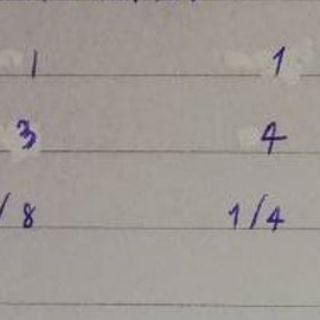 1 1
3 4
/ 8 1/4